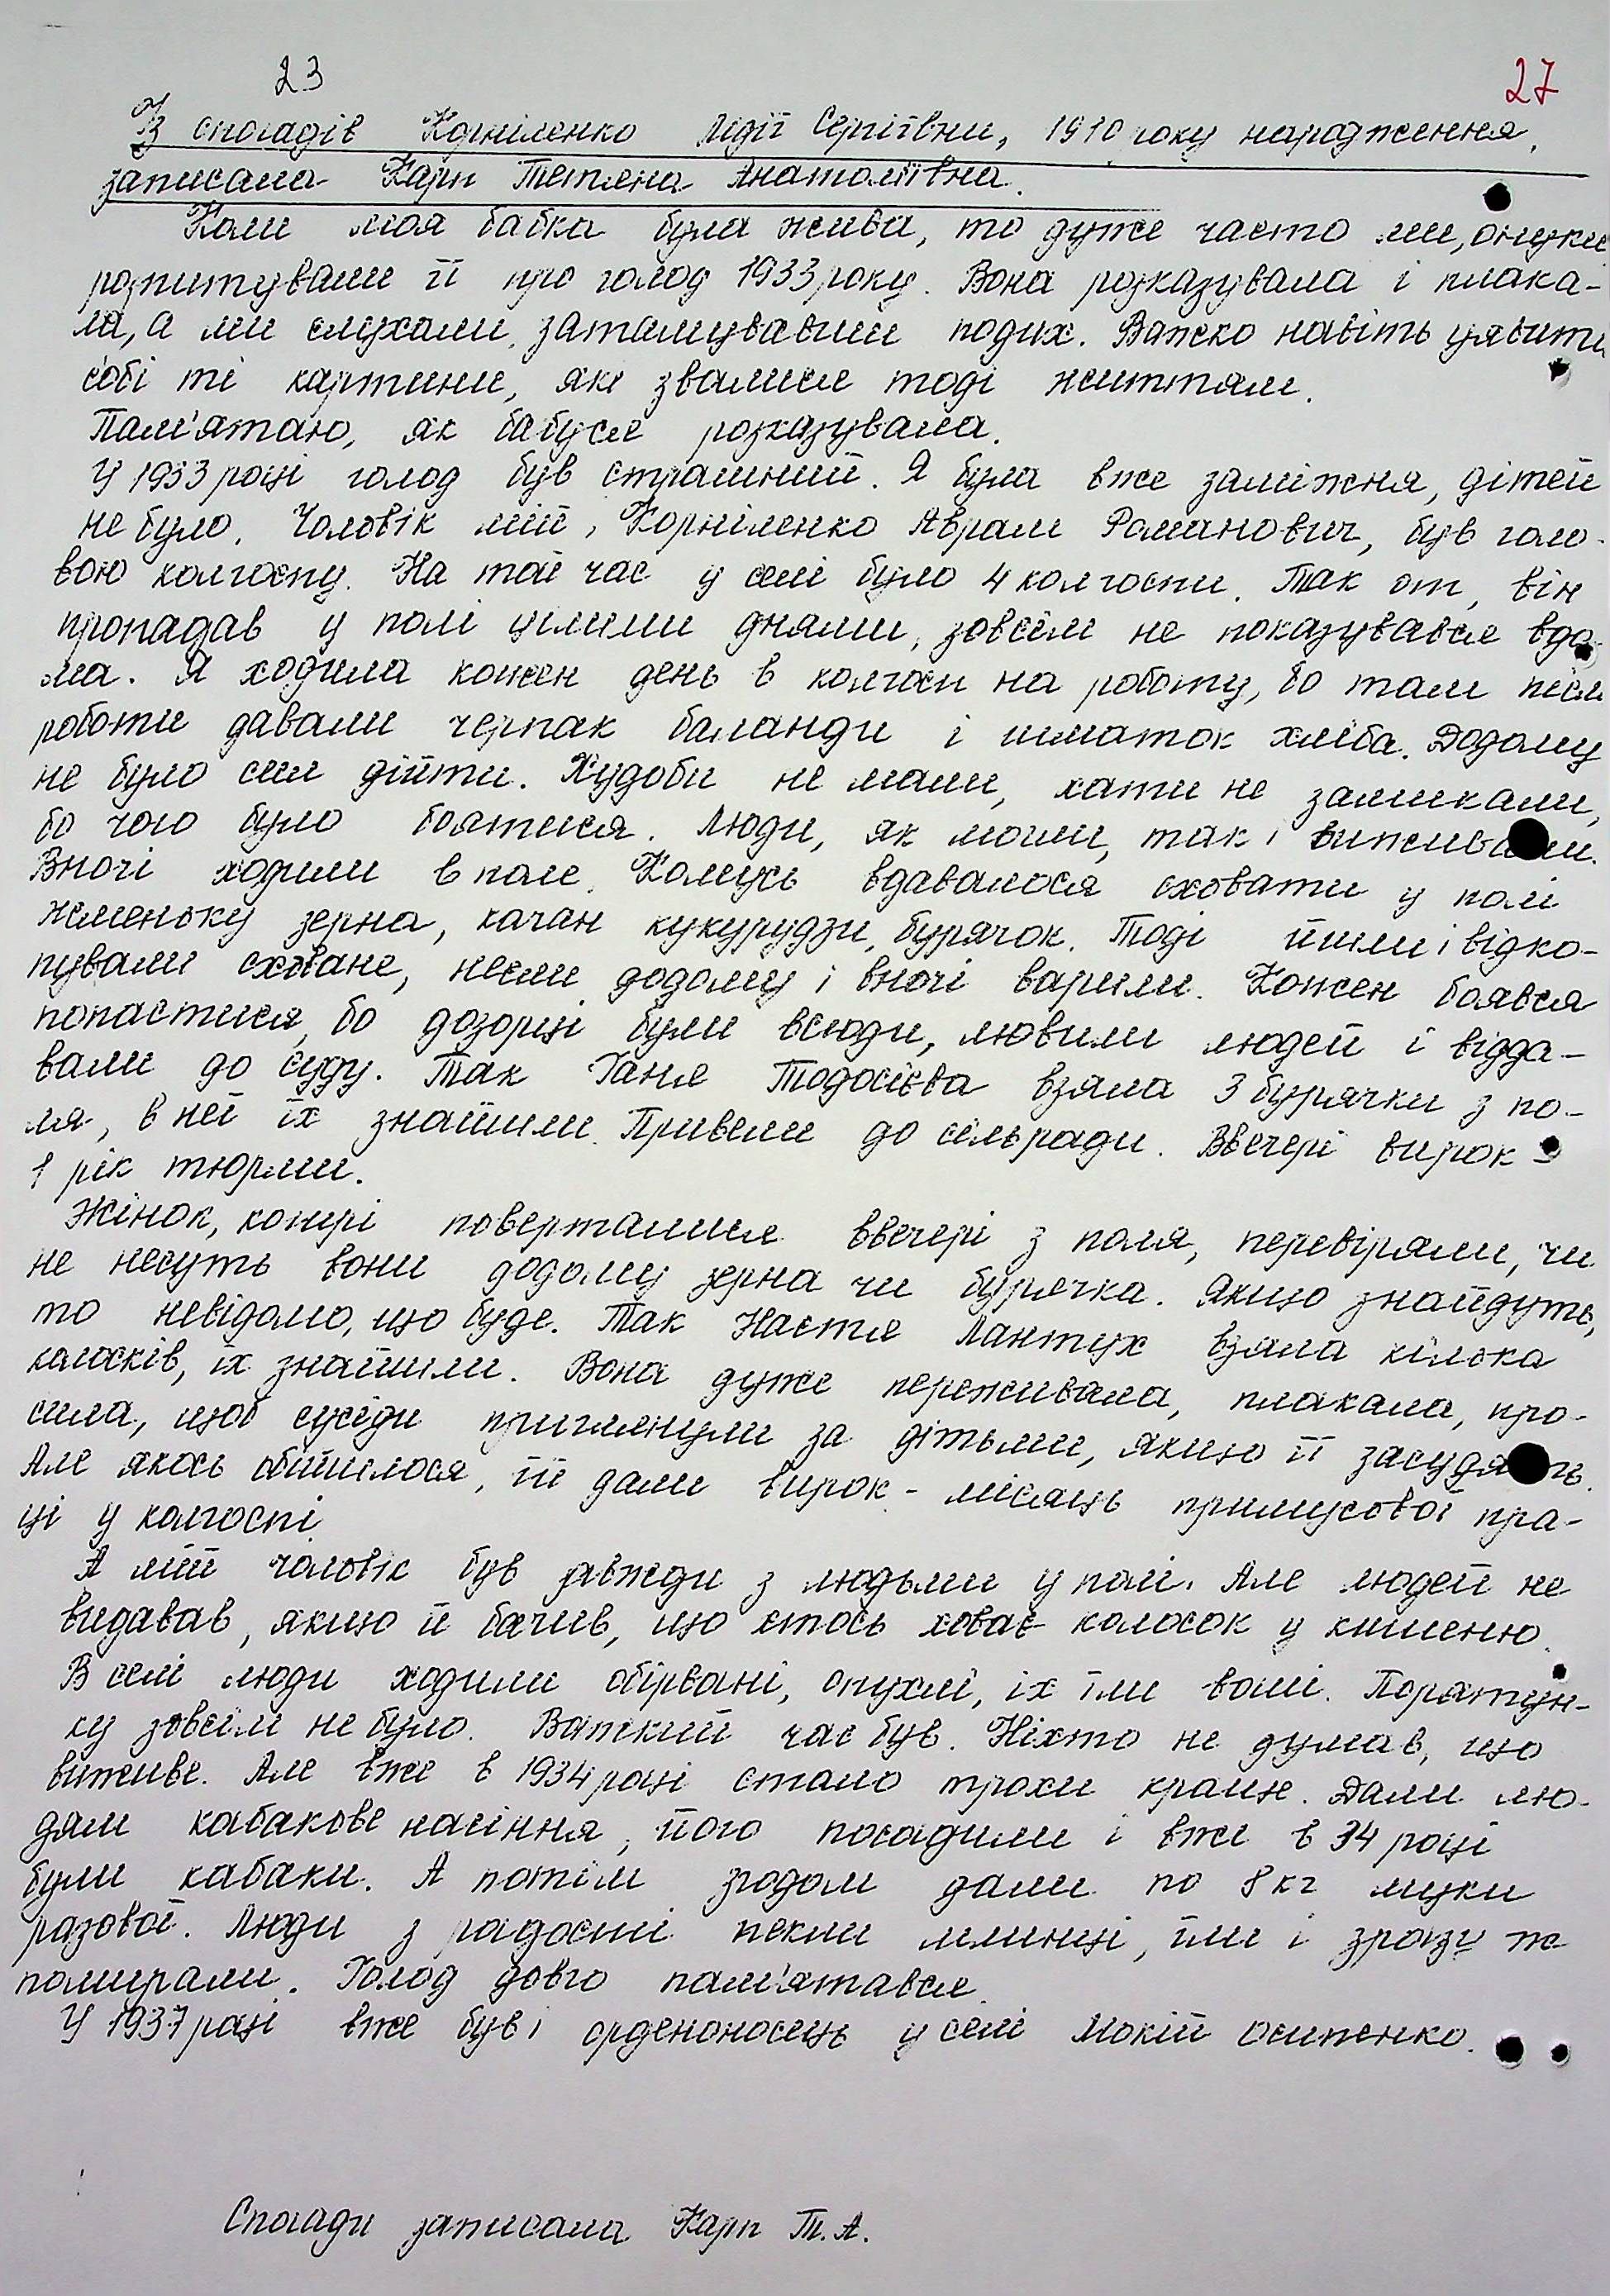 23
27
Із спогадів Корніленко Лідії Сергіївни, 1910 року народження,
записала Карп Тетяна Анатоліївна.
Коли моя бабка була жива, то дуже часто ми, онуки
розпитували її про голод 1933 року. Вона розказувала і плака-
ла, а ми слухали, затамувавши подих. Важко навіть уявити
собі ті картини, які звалися тоді життям.
Пам'ятаю, як бабуся розказувала.
У 1933 році голод був страшний. Я була вже заміжня, дітей
не було. Чоловік мій, Корніленко Аврам Романович, був голо-
вою колгоспу. На той час у селі було 4 колгоспи. Так от, він
пропадав у полі цілими днями, зовсім не показувався вдо-
ма. Я ходила кожен день в колгосп на роботу, бо там після
роботи давали черпак баланди і шматок хліба. Додому
не було сил дійти. Худоби не мали, хати не замикали,
бо чого було боятися. Люди, як могли, так і виживали.
Вночі ходили в поле. Комусь вдавалося сховати у полі
жменьку зерна, качан кукурудзи, бурячок. Тоді йшли і відко-
пували сховане, несли додому і вночі варили. Кожен боявся
попастися, бо дозорці були всюди, ловили людей і відда-
вали до суду. Так Ганя Тодосієва взяла 3 бурячки з по-
ля, в неї їх знайшли. Привели до сільради. Ввечері вирок -
1 рік тюрми.
Жінок, котрі поверталися ввечері з поля, перевіряли, чи
не несуть вони додому зерна чи бурячка. Якщо знайдуть,
то невідомо, що буде. Так Настя Лантух взяла кілька
колосків, їх знайшли. Вона дуже переживала, плакала, про-
сила, щоб сусіди приглянули за дітьми, якщо її засудять.
Але якось обійшлося, їй дали вирок - місяць примусової пра-
ці у колгоспі.
А мій чоловік був завжди з людьми у полі. Але людей не
видавав, якщо й бачив, що хтось ховає колосок у кишеню.
В селі люди ходили обірвані, опухлі, їх їли воші. Порятун-
ку зовсім не було. Важкий час був. Ніхто не думав, що
виживе. Але вже в 1934 році стало трохи краще. Дали лю-
дям кабакове насіння, його посадили і вже в 34 році
були кабаки. А потім згодом дали по 8 кг муки
разової. Люди з радості пекли млинці, їли і зразу ж
помирали. Голод довго пам'ятався.
У 1937 році вже був і орденоносець у селі Мокій Осипенко.
Спогади записала Карп Т.А.